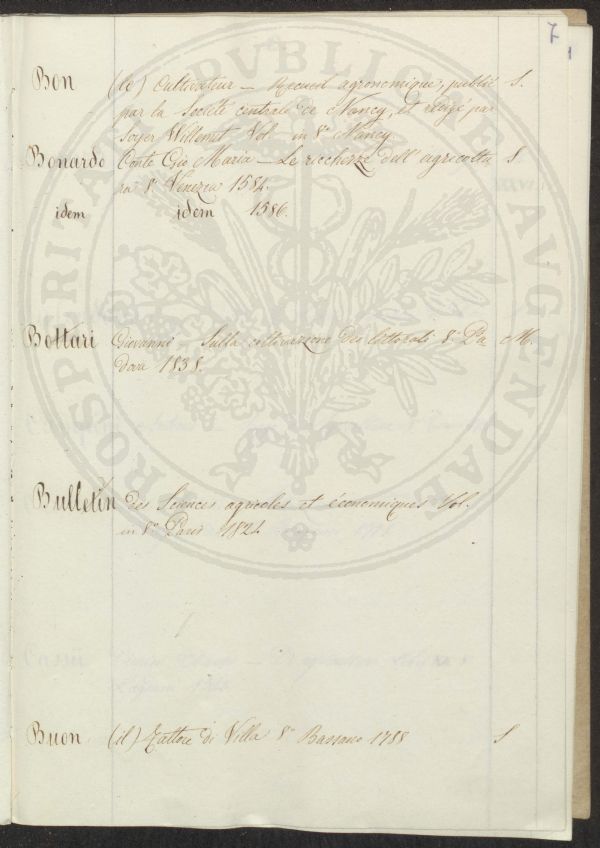 7
1
Bon (le) Cultivateur — Recueil agronomique, publié S.
par la Societé centrale de Nancy, et redigé par
Soyer Willemet Vol in 8º Nancy
Bonardo Conte Gio Maria — Le ricchezze dell'agricoltu S
ra 8º Venezia 1584.
idem idem 1586.
Bottari Giovanni — Sulla coltivazione dei littorali 8º Pa M.
dova 1838.
Bulletin des Sciences agricoles et économiques Vol.
in 8º Paris 1824
Buon (il) Fattore di Villa 8º Bassano 1788 S
PROSPERITATI PVBLICAE AVGENDAE